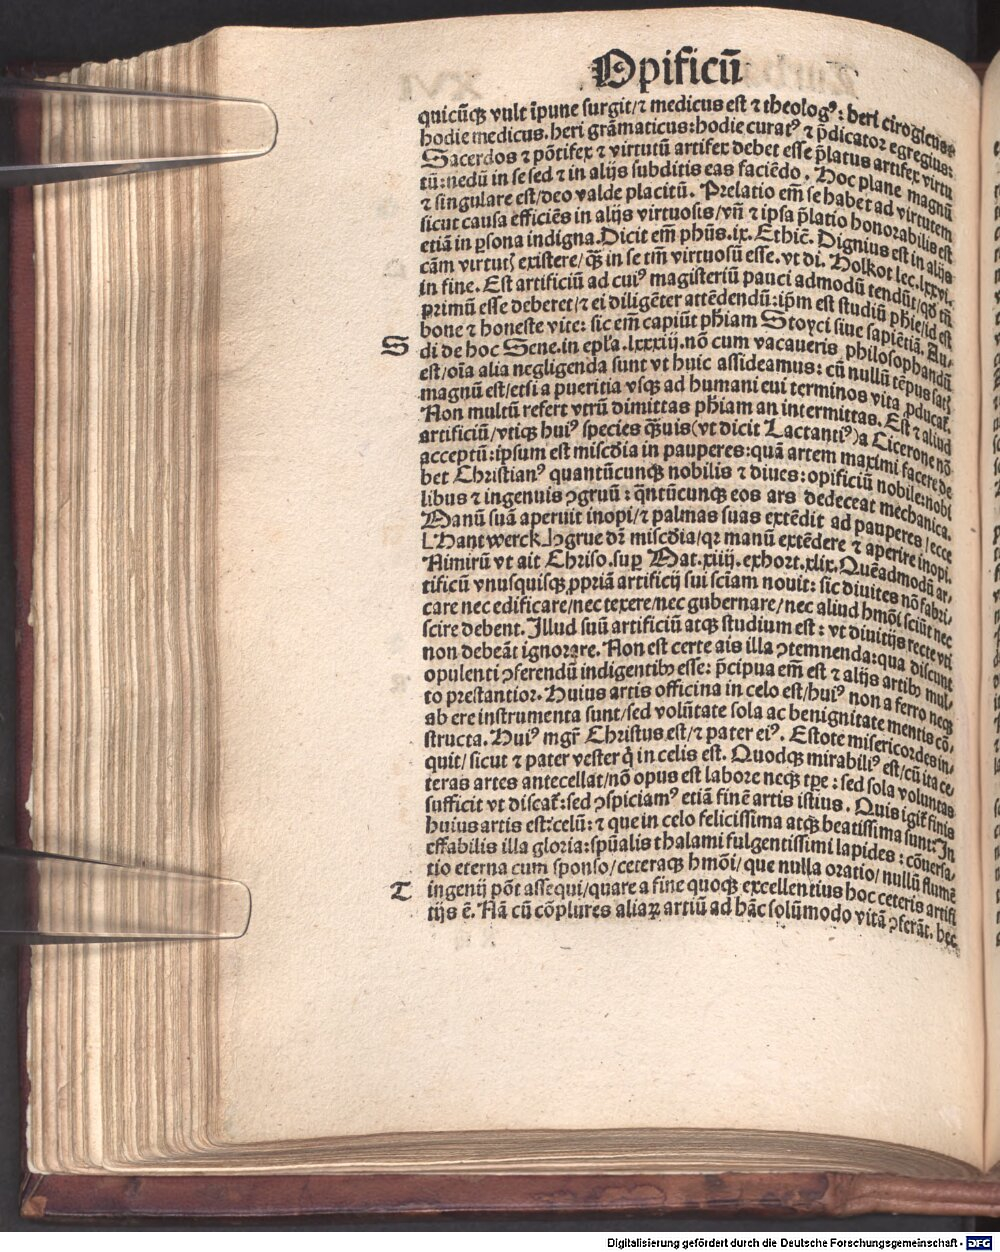 Opificū
quicūqꝫ vult īpune surgit/⁊ medicus est ⁊ theologꝰ: heri cirogicus:
hodie medicus.heri grāmaticus:hodie curatꝰ ⁊ p̄dicator egregius:
Sacerdos ⁊ pōtifex ⁊ virtutū artifex debet esse p̄latus artifex virtu
tū:nedū in se sed ⁊ in alijs subditis eas faciēdo. Hoc plane magnū
⁊ singulare est/deo valde placitū. Prelatio em̄ se habet ad virtutem
sicut causa efficiēs in alijs virtuosis/vn̄ ⁊ ipsa p̄latio honorabilis est
etiā in ꝑsona indigna.Dicit em̄ phūs.ix.Ethic̄. Dignius est in alijs
cām virtutꝭ existere/qꝫ̄ in se tm̄ virtuosū esse.vt di. Holkot lec.lxxvi.
in fine. Est artificiū ad cuiꝰ magisteriū pauci admodū tendūt/qd̄ tn̄
primū esse deberet/⁊ ei diligēter attēdendū:ip̄m est studiū phīe/id est
bone ⁊ honeste vite: sic em̄ capiūt ph̄iam Stoyci siue sapiētiā. Au⸗
S di de hoc Sene.in epl̄a.lxxxiij.nō cum vacaueris philosophandū
est/oīa alia negligenda sunt vt huic assideamus: cū nullū tēpus satꝭ
magnū est/etsi a pueritia vsqꝫ ad humani eui terminos vita ꝓducat̄.
Non multū refert vtrū dimittas ph̄iam an intermittas. Est ⁊ aliud
artificiū/vtiqꝫ huiꝰ species qꝫ̄uis(vt dicit Lactantiꝰ)a Cicerone nō
acceptū:ipsum est miscdīa in pauperes:quā artem maximi facere de
bet Christianꝰ quantūcunqꝫ nobilis ⁊ diues: opificiū nobile:nobi
libus ⁊ ingenuis ꝯgruū: qn̄tūcunqꝫ eos ars dedeceat mechanica.
Manū suā aperuit inopi/⁊ palmas suas extēdit ad pauperes/ecce
Hantwerck.ꝯgrue dr̄ miscdīa/qꝛ manū extēdere ⁊ aperire inopi.
Nimirū vt ait Chriso.suꝑ Mat.xiiij.exhort.xlix.Quēadmodū ar⸗
tificū vnusquisqꝫ ꝓpriā artificij sui sciam nouit: sic diuites nō fabri⸗
care nec edificare/nec texere/nec gubernare/nec aliud hmōi sciūt nec
scire debent. Illud suū artificiū atqꝫ studium est: vt diuitijs recte vti
non debeāt ignorare. Non est certe ais illa ꝯtemnenda:qua discunt
opulenti ꝯferendū indigentibꝰ esse: p̄cipua em̄ est ⁊ alijs artibꝰ mul⸗
to prestantior. Huius artis officina in celo est/huiꝰ non a ferro neqꝫ
ab ere instrumenta sunt/sed volūtate sola ac benignitate mentis cō⸗
structa. Huiꝰ mgr̄ Christus est/⁊ pater eiꝰ. Estote misericordes in⸗
quit/sicut ⁊ pater vester q̇ in celis est. Quodqꝫ mirabiliꝰ est/cū ita ce⸗
teras artes antecellat/nō opus est labore neqꝫ tꝑe: sed sola voluntas
sufficit vt discat̄:sed ꝯspiciamꝰ etiā finē artis istius. Quis igit̄ finis
huius artis est:celū: ⁊ que in celo felicissima atqꝫ beatissima sunt:In
effabilis illa gloria:spūalis thalami fulgentissimi lapides: cōuersa⸗
tio eterna cum sponso/ceteraqꝫ hmōi/que nulla oratio/nullū flumē
T ingenij pōt assequi/quare a fine quoqꝫ excellentius hoc ceteris artifi
tijs ē. Nā cū cōplures aliaꝝ artiū ad hāc solūmodo vitā ꝯferāt. hec
Digitalisierung gefördert durch die Deutsche Forschungsgemeinschaft - DFG